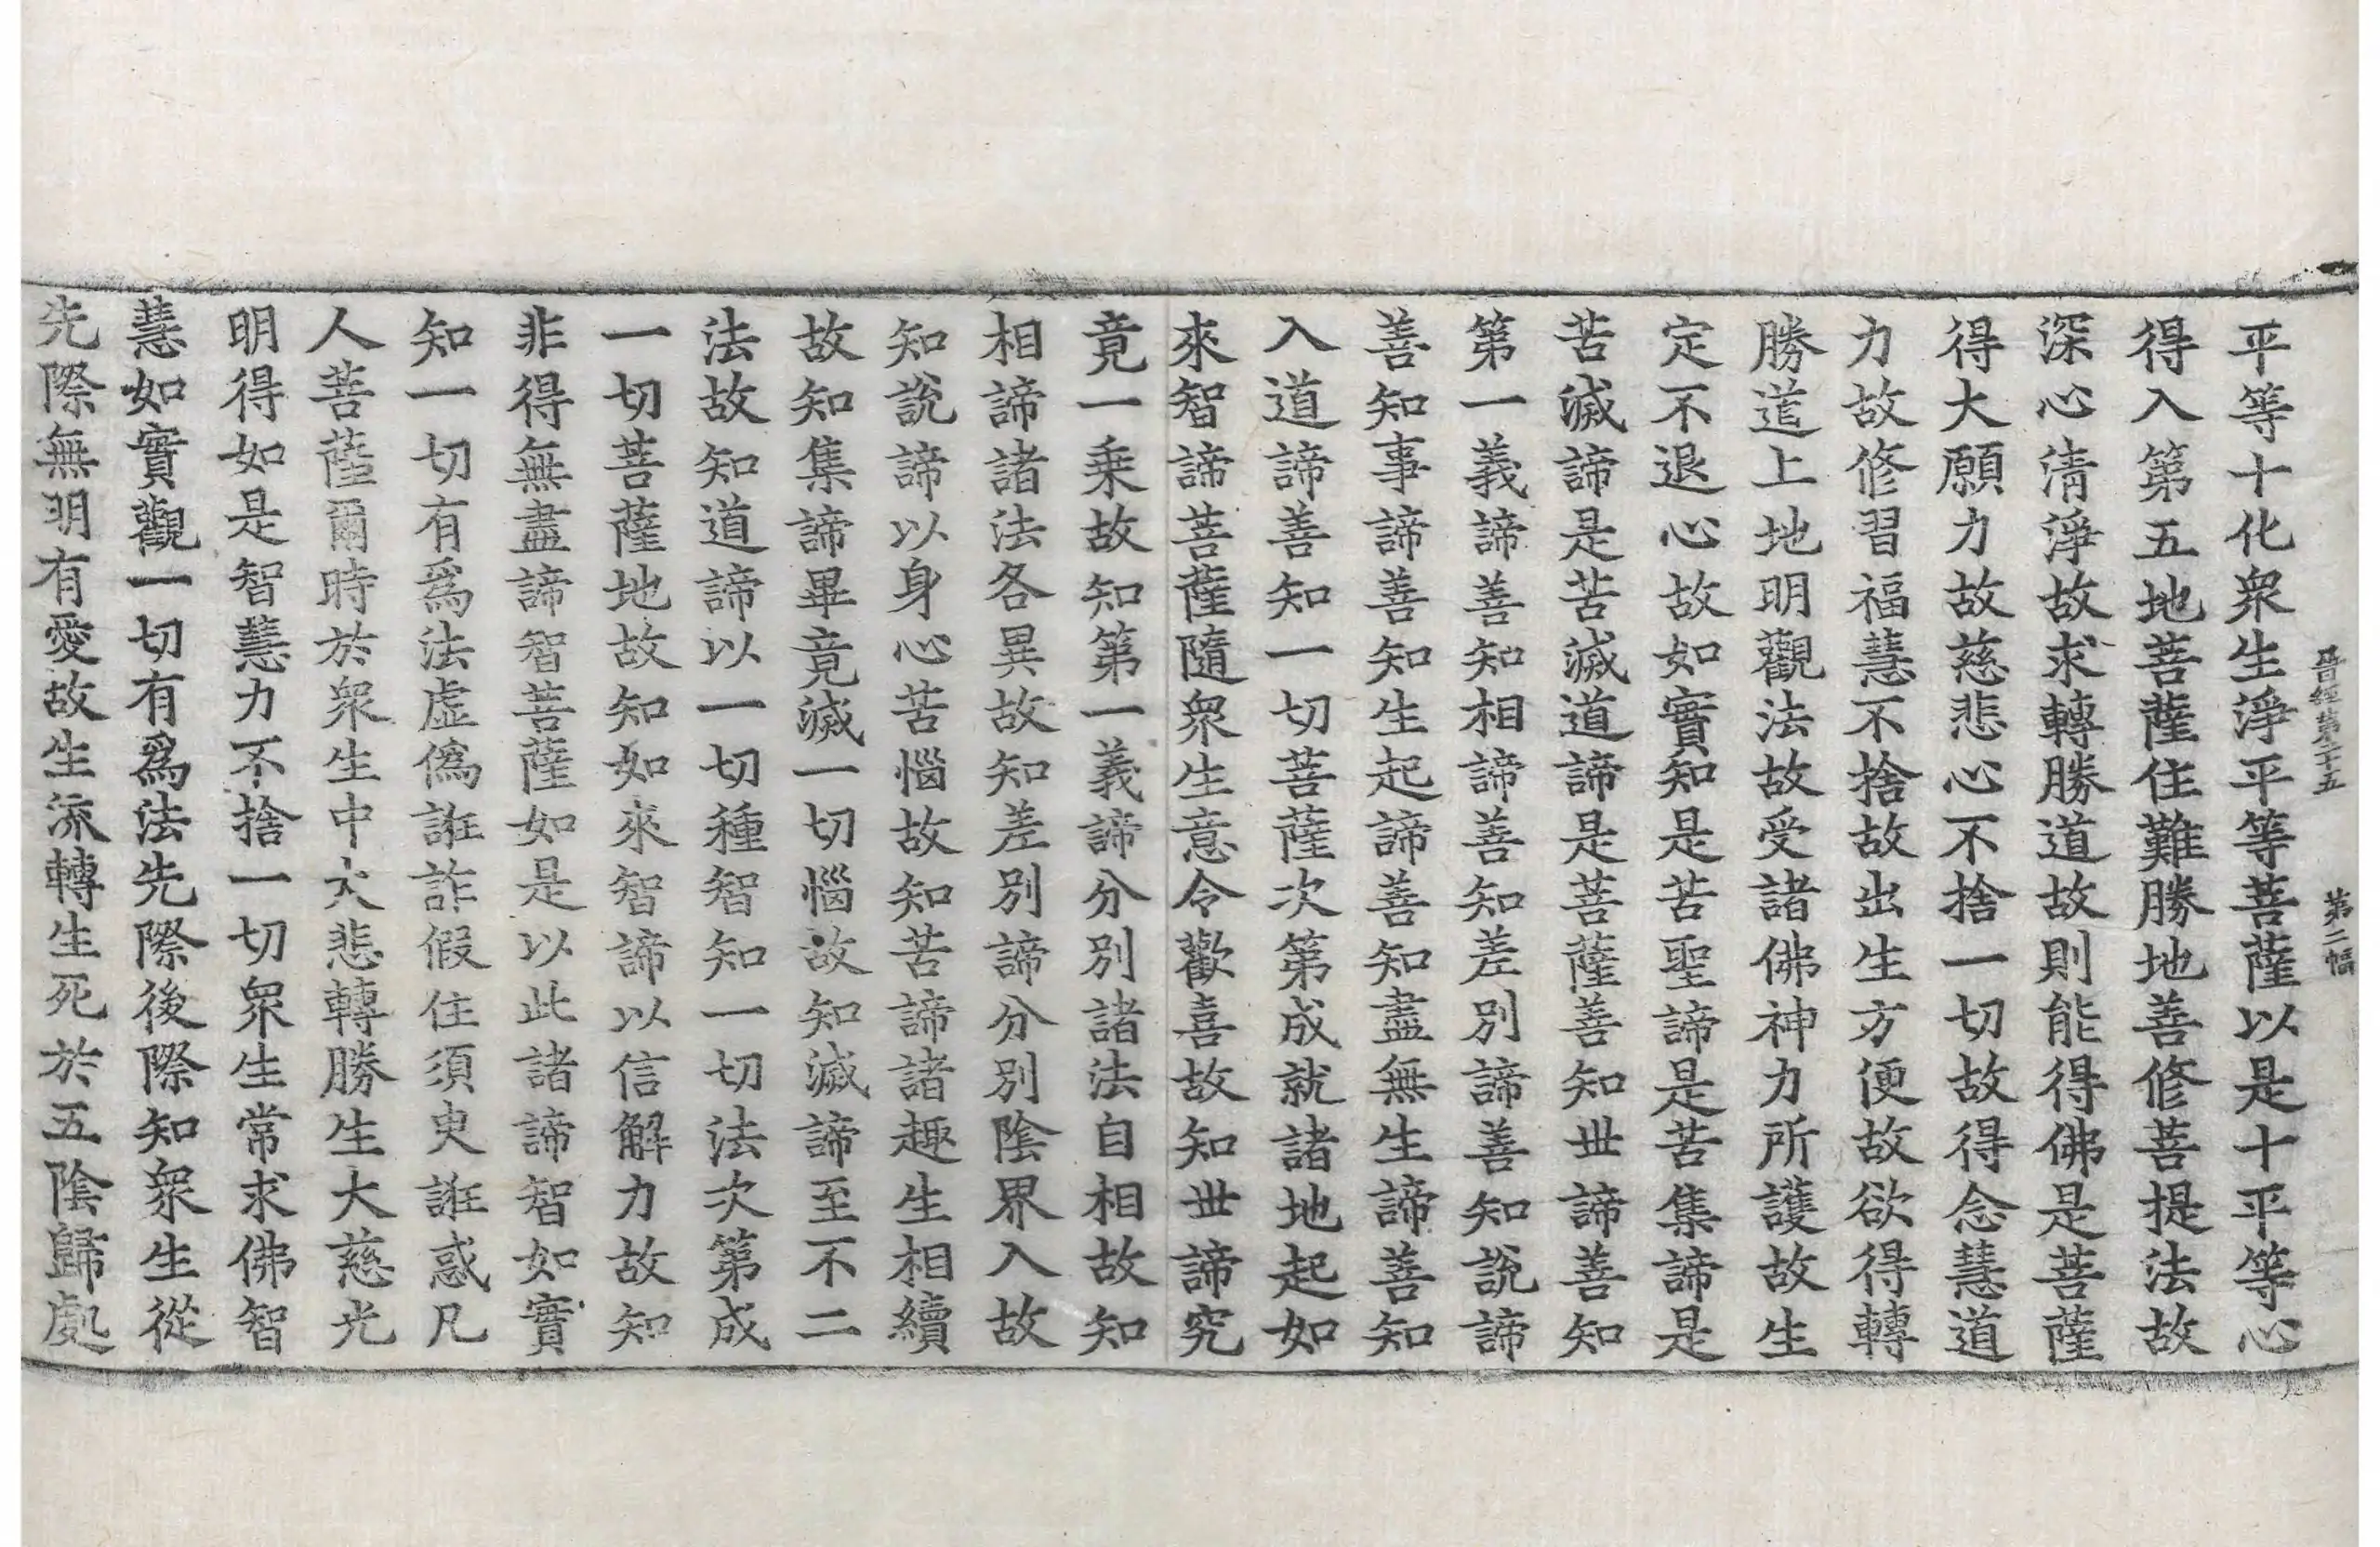 晉經第二十五 第二幅
平等十化衆生淨平等菩薩以是十平等心
得入第五地菩薩住難勝地善修菩提法故
深心淸淨故求轉勝道故則能得佛是菩薩
得大願力故慈悲心不捨一切故得念慧道
力故修習福慧不捨故出生方便故欲得轉
勝道上地明觀法故受諸佛神力所護故生
定不退心故如實知是苦聖諦是苦集諦是
苦滅諦是苦滅道諦是菩薩善知世諦善知
第一義諦善知相諦善知差別諦善知說諦
善知事諦善知生起諦善知盡無生諦善知
入道諦善知一切菩薩次第成就諸地起如
來智諦菩薩隨衆生意令歡喜故知世諦究
竟一乘故知第一義諦分別諸法自相故知
相諦諸法各異故知差別諦分別陰界入故
知說諦以身心苦惱故知苦諦諸趣生相續
故知集諦畢竟滅一切惱故知滅諦至不二
法故知道諦以一切種智知一切法次第成
一切菩薩地故知如來智諦以信解力故知
非得無盡諦智菩薩如是以此諸諦智如實
知一切有爲法虛僞誑詐假住須臾誑惑凡
人菩薩爾時於衆生中大悲轉勝生大慈光
明得如是智慧力不捨一切衆生常求佛智
慧如實觀一切有爲法先際後際知衆生從
先際無明有愛故生流轉生死於五陰歸處